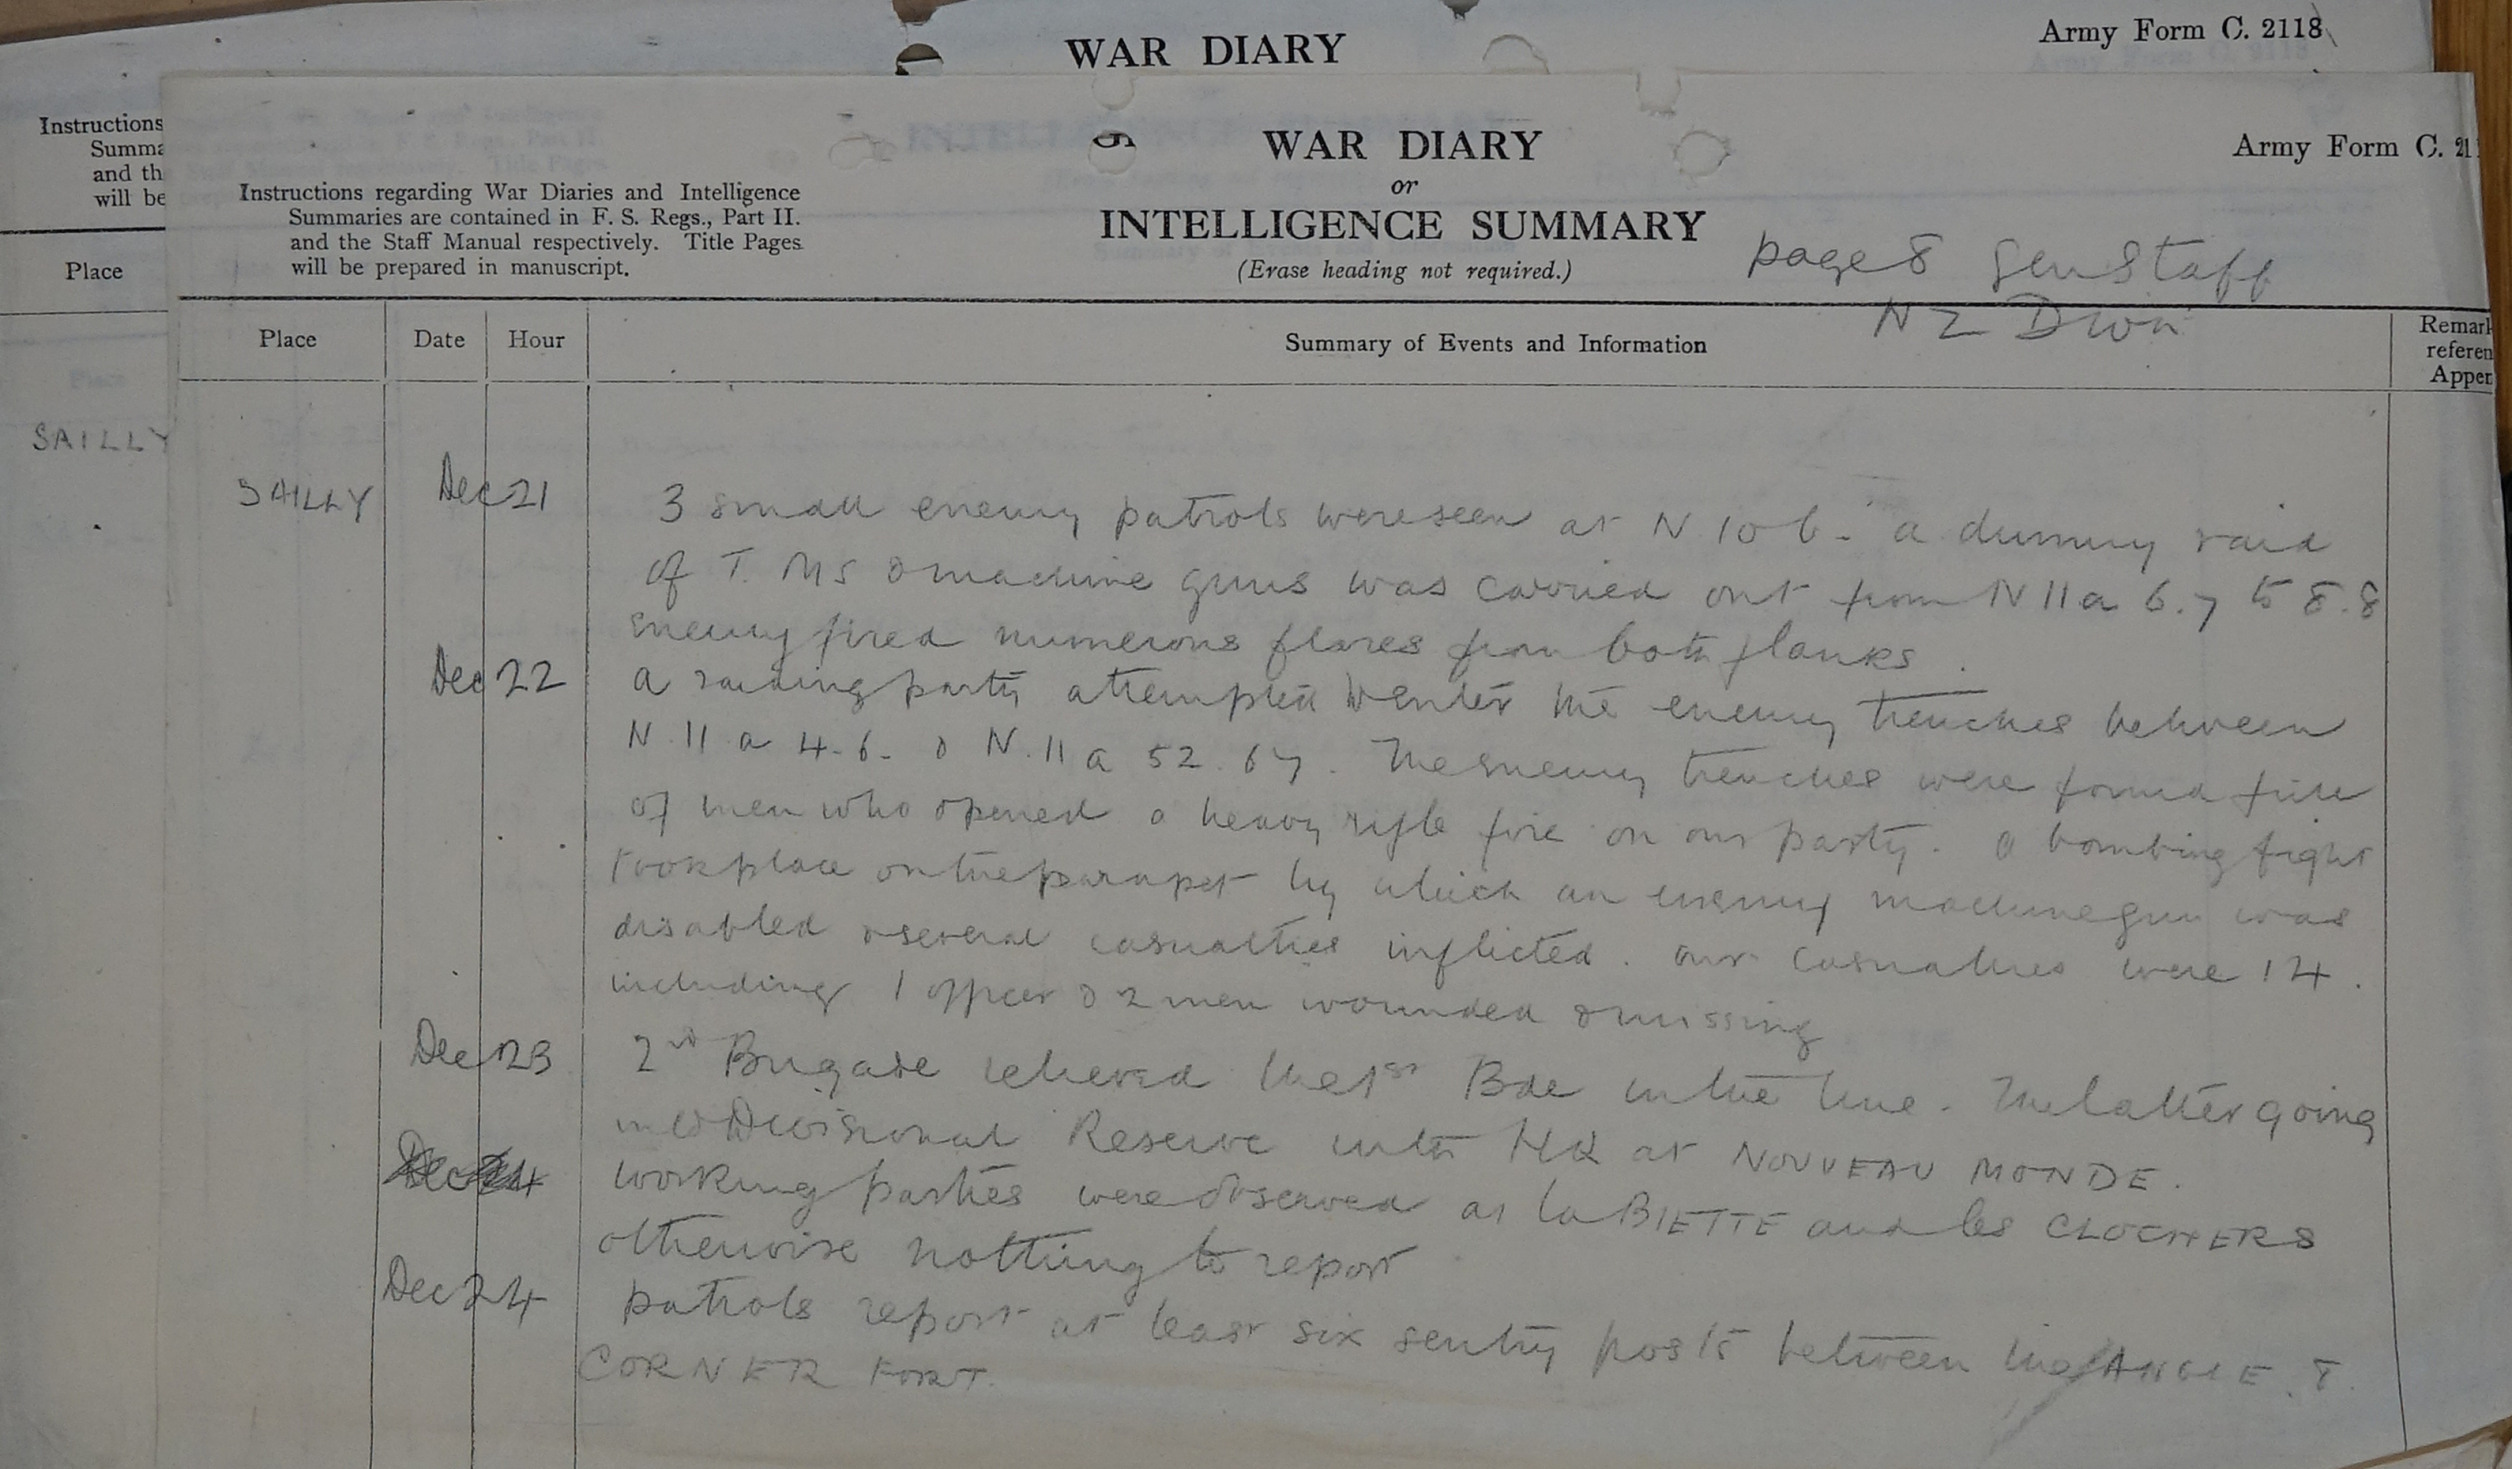 WAR DIARY
Army Form C. 2118
Instructions
Summa
and th
will be
Place
SAILLY
WAR DIARY
or
INTELLIGENCE SUMMARY
(Erase heading not required.)
Army Form C. 21
Instructions regarding War Diaries and Intelligence
Summaries are contained in F. S. Regs., Part II.
and the Staff Manual respectively. Title Pages
will be prepared in manuscript.
page 8 Gen Staff
NZ Divn
Place Date Hour Summary of Events and Information
Remark
referen
Appen
SAILLY Dec 21 3 small enemy patrols were seen at N 10 b - a dummy raid
of T. Ms & machine guns was carried out from N 11 a 6.7 to 8.8
enemy fired numerous flares from both flanks.
Dec 22 a raiding party attempted to enter the enemy trenches between
N. 11 a 4.6. & N. 11 a 52.67. The enemy trenches were found full
of men who opened a heavy rifle fire on our party. a bombing fight
took place on the parapet by which an enemy machine gun was
disabled & several casualties inflicted. our casualties were 14.
including 1 officer & 2 men wounded & missing
Dec 23 2nd Brigade relieved the 1st Bde in the line. The latter going
into Divisional Reserve with HQ at NOUVEAU MONDE.
Dec 24 working parties were observed at la BIETTE and les CLOCHERS
otherwise nothing to report
Dec 24 patrols report at least six sentry posts between the ANGLE &
CORNER FORT.